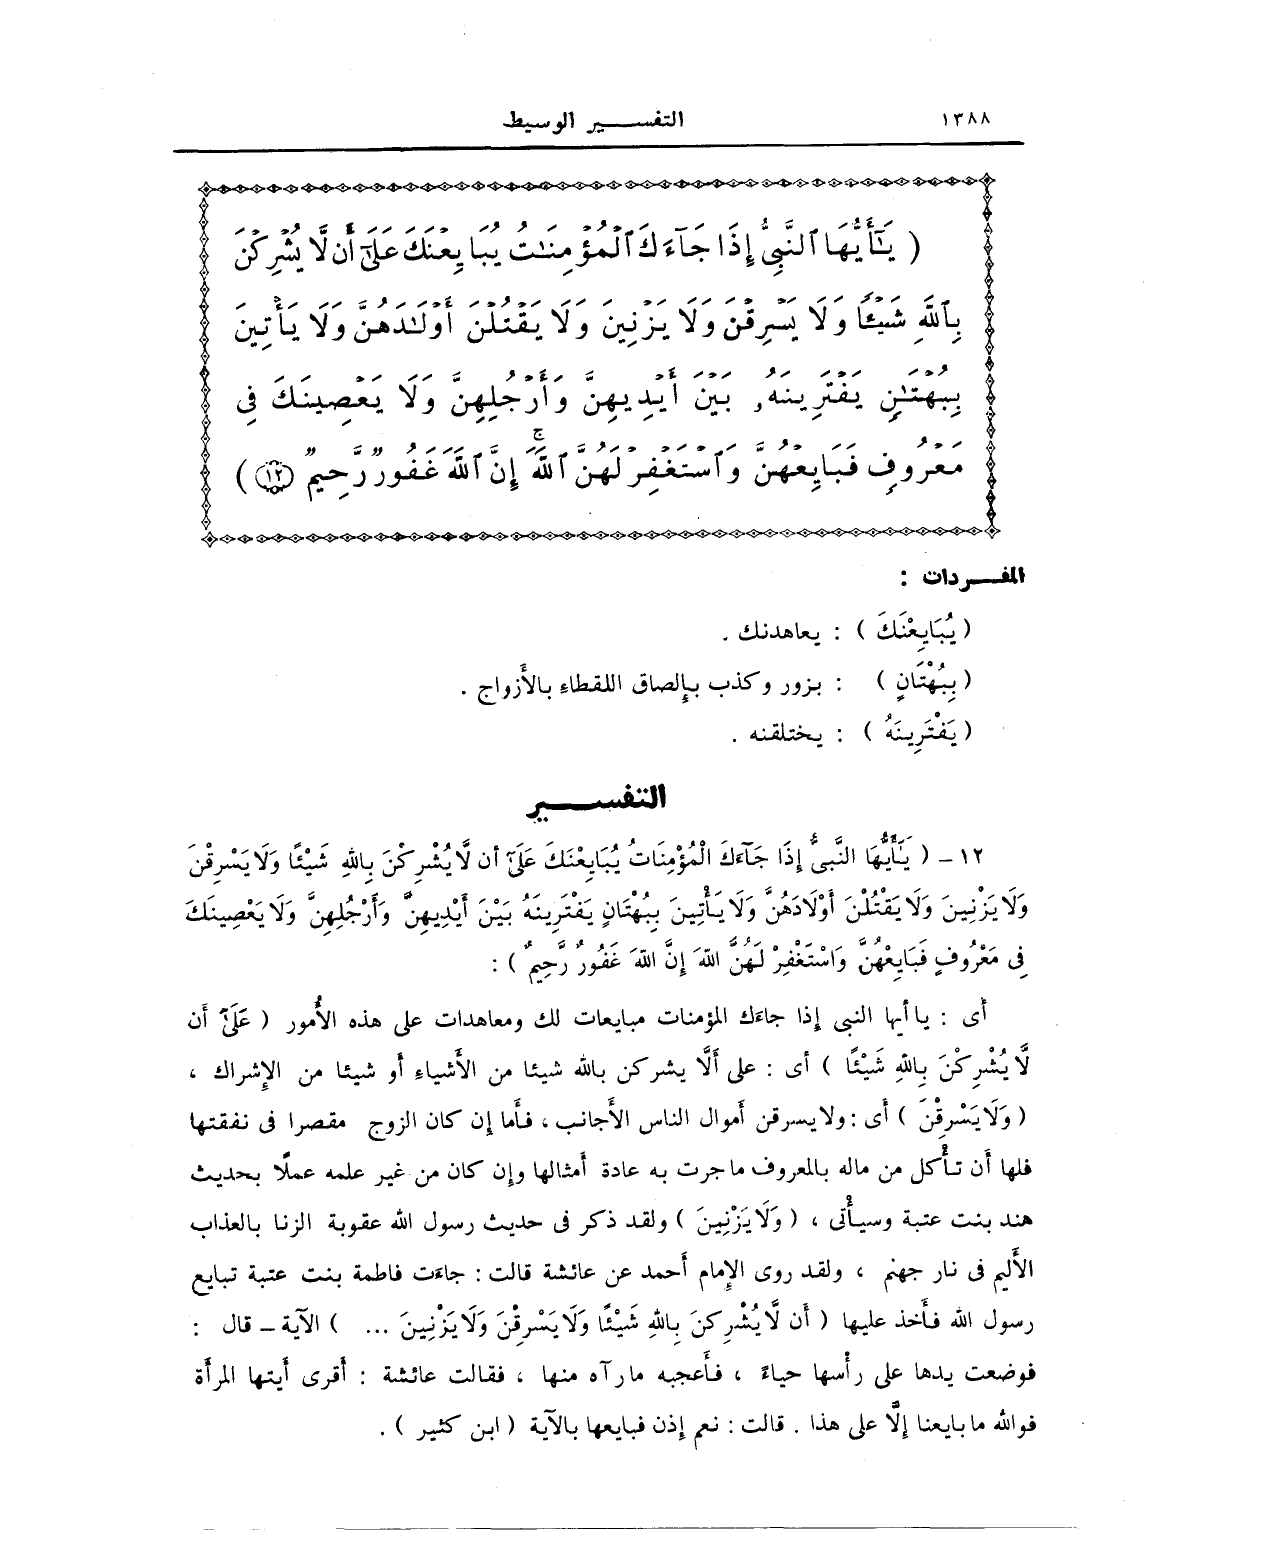 ١٣٨٨
التفسير الوسيط
( يَٰٓأَيُّهَا ٱلنَّبِىُّ إِذَا جَآءَكَ ٱلْمُؤْمِنَٰتُ يُبَايِعْنَكَ عَلَىٰٓ أَن لَّا يُشْرِكْنَ
بِٱللَّهِ شَيْـًٔا وَلَا يَسْرِقْنَ وَلَا يَزْنِينَ وَلَا يَقْتُلْنَ أَوْلَٰدَهُنَّ وَلَا يَأْتِينَ
بِبُهْتَٰنٍ يَفْتَرِينَهُۥ بَيْنَ أَيْدِيهِنَّ وَأَرْجُلِهِنَّ وَلَا يَعْصِينَكَ فِى
مَعْرُوفٍ فَبَايِعْهُنَّ وَٱسْتَغْفِرْ لَهُنَّ ٱللَّهَ ۚ إِنَّ ٱللَّهَ غَفُورٌ رَّحِيمٌ ﴿١٢﴾ )
المفردات :
( يُبَايِعْنَكَ ) : يعاهدنك .
( بِبُهْتَانٍ ) : بزور وكذب بإلصاق اللقطاء بالأزواج .
( يَفْتَرِينَهُ ) : يختلقنه .
التفسير
١٢ – ( يَٰٓأَيُّهَا النَّبِىُّ إِذَا جَآءَكَ الْمُؤْمِنَاتُ يُبَايِعْنَكَ عَلَىٰٓ أن لَّا يُشْرِكْنَ بِاللهِ شَيْئًا وَلَا يَسْرِقْنَ
وَلَا يَزْنِينَ وَلَا يَقْتُلْنَ أَوْلَادَهُنَّ وَلَا يَأْتِينَ بِبُهْتَانٍ يَفْتَرِينَهُ بَيْنَ أَيْدِيهِنَّ وَأَرْجُلِهِنَّ وَلَا يَعْصِينَكَ
فِى مَعْرُوفٍ فَبَايِعْهُنَّ وَاسْتَغْفِرْ لَهُنَّ اللهَ إِنَّ اللهَ غَفُورٌ رَّحِيمٌ ) :
أى : يا أيها النبى إذا جاءك المؤمنات مبايعات لك ومعاهدات على هذه الأُمور ( عَلَىٰٓ أن
لَّا يُشْرِكْنَ بِاللهِ شَيْئًا ) أى : على ألَّا يشركن بالله شيئا من الأَشياء أو شيئا من الإشراك ،
( وَلَا يَسْرِقْنَ ) أى : ولا يسرقن أموال الناس الأَجانب ، فأما إن كان الزوج مقصرا فى نفقتها
فلها أن تأْكل من ماله بالمعروف ما جرت به عادة أمثالها وإن كان من غير علمه عملًا بحديث
هند بنت عتبة وسيأْتى ، ( وَلَا يَزْنِينَ ) ولقد ذكر فى حديث رسول الله عقوبة الزنا بالعذاب
الأَليم فى نار جهنم ، ولقد روى الإمام أحمد عن عائشة قالت : جاءَت فاطمة بنت عتبة تبايع
رسول الله فأخذ عليها ( أن لَّا يُشْرِكنَ بِاللهِ شَيْئًا وَلَا يَسْرِقْنَ وَلَا يَزْنِينَ ... ) الآية – قال :
فوضعت يدها على رأْسها حياءً ، فأَعجبه ما رآه منها ، فقالت عائشة : أقرى أيتها المرأة
فوالله ما بايعنا إلَّا على هذا . قالت : نعم إذن فبايعها بالآية ( ابن كثير ) .